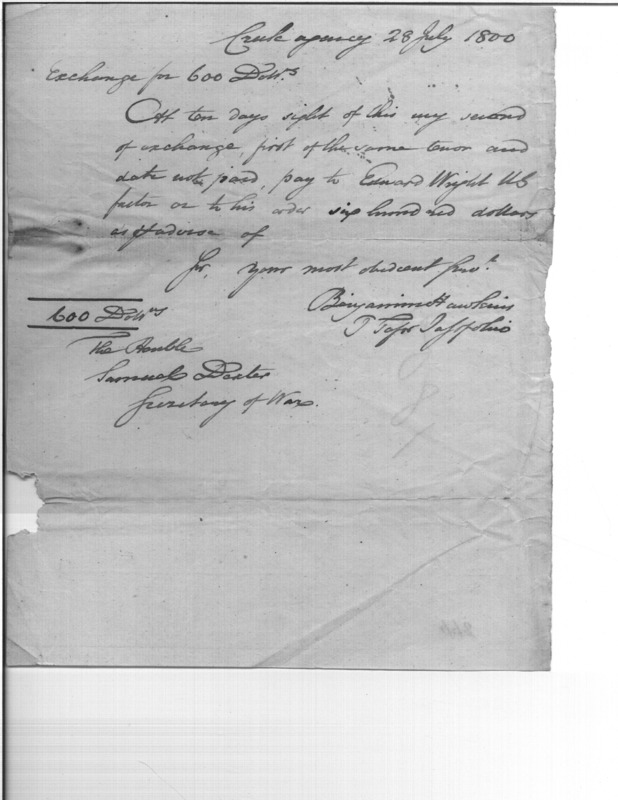 Creek agency 28 July 1800
Exchange for 600 Dolls.
At ten days sight of this my second
of exchange, first of the same tenor and
date not paid, pay to Edward Wright US
factor or to his order six hundred dollars
as p advise of
Sir, your most obedient servt.
Benjamin Hawkins
600 Dollrs
The Honble
Samuel Dexter
Secretary of War.